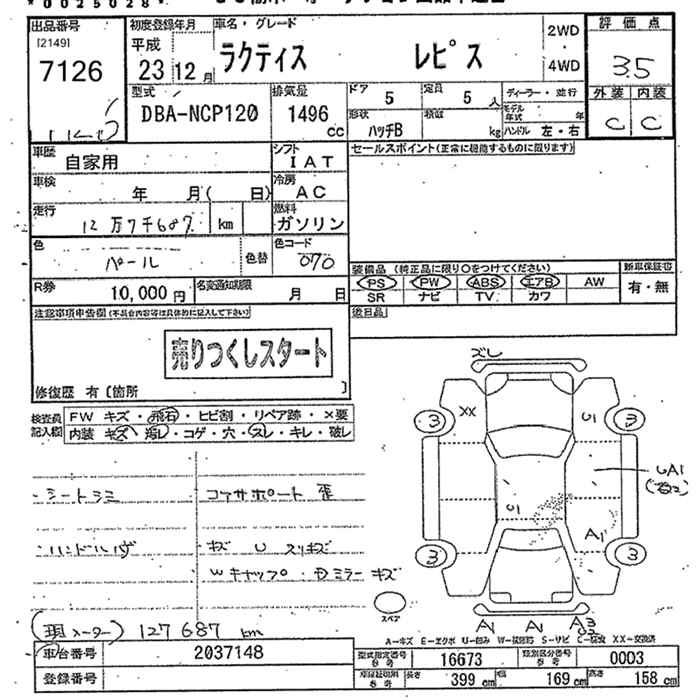 *0025028*
出品番号 初度登録年月 車名・グレード 2WD・4WD 評価点
[2149] 7126 平成23年12月 ラクティス レピス 3.5
型式 排気量 ドア 定員 ディーラー・並行 外装 内装
DBA-NCP120 1496cc 5 5人 C C
形状 ハッチB 積載 kg モデル年式 年 ハンドル 左・右
車歴 自家用 シフト IAT セールスポイント(正常に機能するものに限ります)
車検 年 月( 日) 冷房 AC
走行 12万7千687 km 燃料 ガソリン
色 パール 色替 色コード 070
装備品(純正品に限り○をつけてください) 新車保証書
R券 10,000円 名変通知期限 月 日 PS PW ABS エアB AW 有・無
SR ナビ TV カワ
注意事項申告欄(不具合内容等は具体的に記入して下さい) 後日品
売りつくしスタート
修復歴 有〔箇所 〕
検査員記入欄 FW キズ・飛石・ヒビ割・リペア跡・×要
内装 キズ・汚レ・コゲ・穴・スレ・キレ・破レ
ズレ
XX U1
3 3
UA1
U1
A1
3 3
シートシミ コアサポート歪
ハンドル キズ U スリキズ
Wキャップ・Dミラーキズ
スペア
A1 A1 A3
現 メーター) 127687 km
A-キズ E-エクボ U-凹み S-サビ C-腐食 XX-交換済
車台番号 2037148 型式指定番号 参考 16673 類別区分番号 参考 0003
登録番号 長さ 399cm 幅 169cm 高さ 158cm